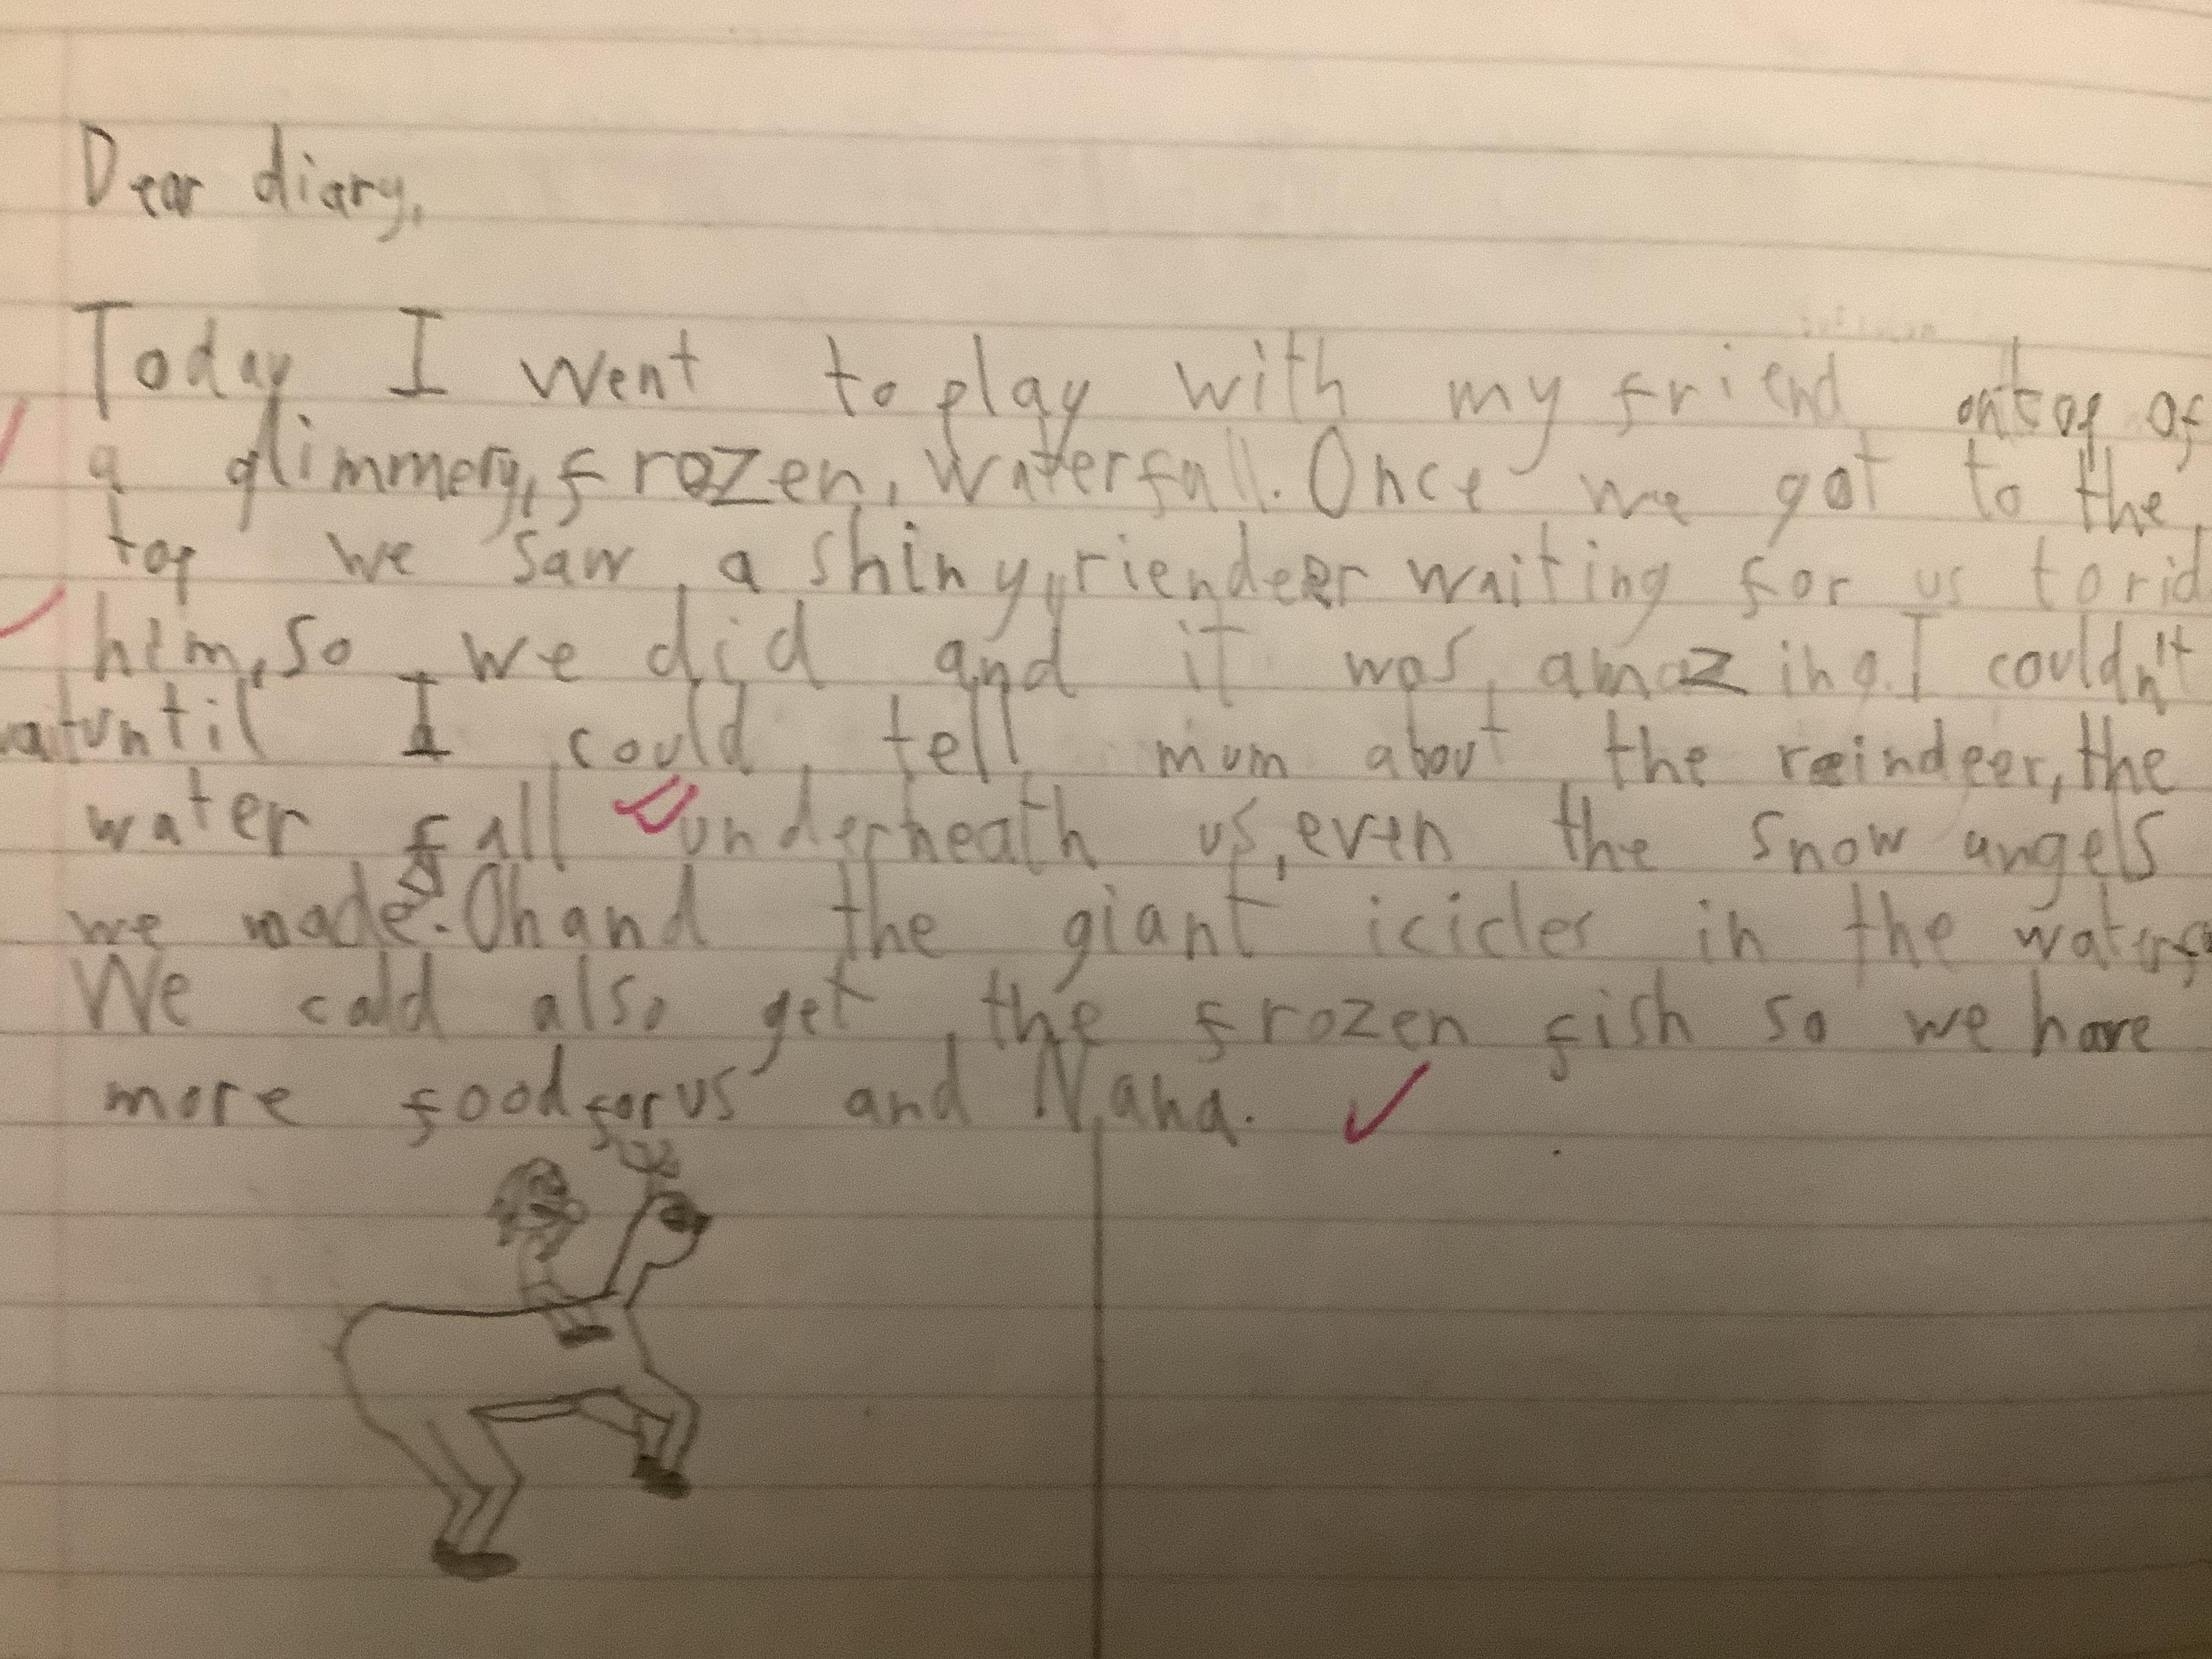 Dear diary,
Today I went to play with my friend ontop of
a glimmery, frozen, waterfall. Once we got to the
top we saw a shiny, riendeer waiting for us to rid
him, so we did and it was amazing. I couldn't
wait until I could tell mum about the reindeer, the
water fall underneath us, even the snow angels
we made. Oh and the giant icicles in the
We cold also get the frozen fish so we have
more food for us and Nana.